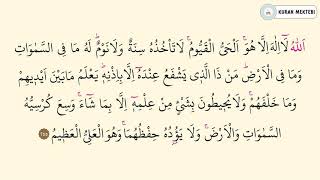 KURAN MEKTEBİ
اَللّٰهُ لَٓا اِلٰهَ اِلَّا هُوَۚ اَلْحَيُّ الْقَيُّومُۚ لَا تَأْخُذُهُ سِنَةٌ وَلَا نَوْمٌۜ لَهُ مَا فِى السَّمٰوَاتِ
وَمَا فِى الْاَرْضِۜ مَنْ ذَا الَّذ۪ى يَشْفَعُ عِنْدَهُٓ اِلَّا بِاِذْنِه۪ۜ يَعْلَمُ مَا بَيْنَ اَيْد۪يهِمْ
وَمَا خَلْفَهُمْۚ وَلَا يُح۪يطُونَ بِشَىْءٍ مِنْ عِلْمِه۪ٓ اِلَّا بِمَا شَٓاءَۚ وَسِعَ كُرْسِيُّهُ
السَّمٰوَاتِ وَالْاَرْضَۚ وَلَا يَؤُ۫دُهُ حِفْظُهُمَاۚ وَهُوَ الْعَلِىُّ الْعَظ۪يمُ